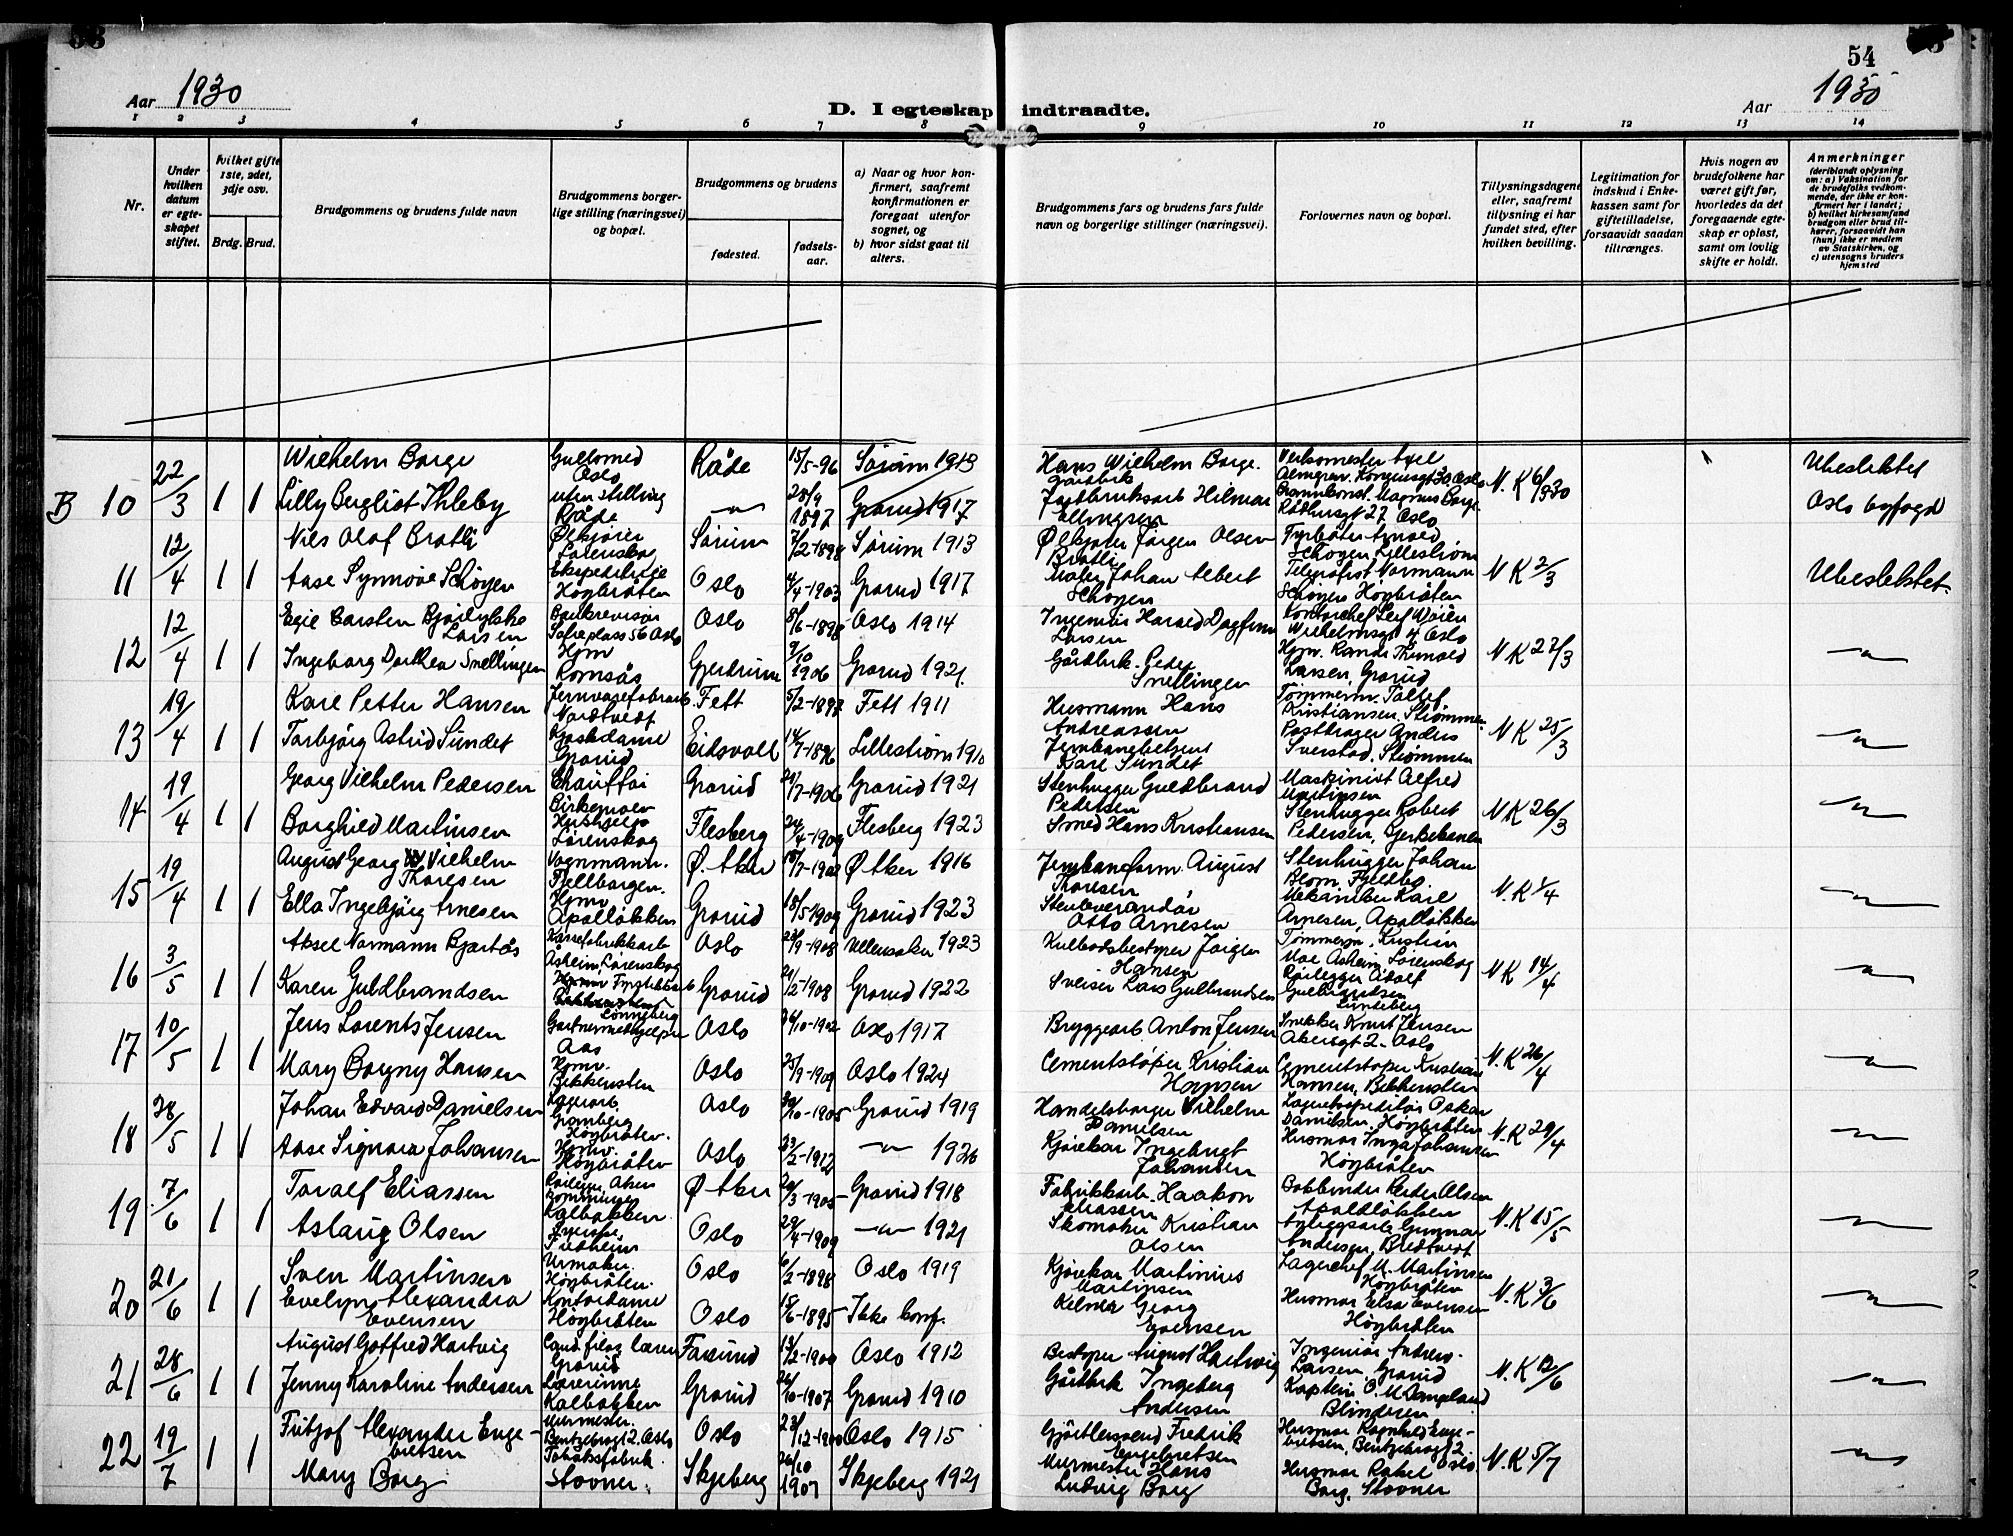 54
Aar 1930
D. I egteskap indtraadte.
Aar 1930
1 2 3 4 5 6 7 8 9 10 11 12 13 14
Nr.
Under hvilken datum er egteskapet stiftet.
Hvilket gifte 1ste, 2det, 3dje osv.
Brdg. Brud.
Brudgommens og brudens fulde navn
Brudgommens borgerlige stilling (næringsvei) og bopæl.
Brudgommens og brudens
fødested.
fødselsaar.
a) Naar og hvor konfirmert, saafremt konfirmationen er foregaat utenfor sognet, og
b) hvor sidst gaat til alters.
Brudgommens fars og brudens fars fulde navn og borgerlige stillinger (næringsvei).
Forlovernes navn og bopæl.
Tillysningsdagene eller, saafremt tillysning ei har fundet sted, efter hvilken bevilling.
Legitimation for indskud i Enkekassen samt for giftetilladelse, forsaavidt saadan tiltrænges.
Hvis nogen av brudefolkene har været gift før, hvorledes da det foregaaende egteskap er opløst, samt om lovlig skifte er holdt.
Anmerkninger (deriblandt oplysning om: a) Vaksination for de brudefolks vedkommende, der ikke er konfirmert her i landet; b) hvilket kirkesamfund brudgom eller brud tilhører, forsaavidt han (hun) ikke er medlem av Statskirken, og c) utensogns bruders hjemsted
B 10 22/3 1 1
Wilhelm Borge Gullsmed Oslo Råde 15/5-96 Sørum 1913
Hans Wilhelm Borge. Gårdbrk
Verksmester Axel Almgren, Kongensgt 30 Oslo
N.K 6/3 930
Ubeslektet
Lilly Berglist Thleby uten stilling Råde —"— 28/9 1897 Grorud 1917
Jordbruksarb Hilmar Ellingsen
Magnus Borge Rådhusgt 27 Oslo
Oslo byfogd
11 12/4 1 1
Nils Olof Bratli Ølkjører Lørenskog Sørum 7/2-1898 Sørum 1913
Ølkjører Jørgen Olsen Bratli
Fyrbøter Arnold Schøyen Lillestrøm
N K 2/3
Ubeslektet.
Aase Synnøve Schøyen Ekspeditrise Høybråten Oslo 4/4-1903 Grorud 1917
Maler Johan Albert Schøyen
Telegrafist Normann Schøyen Høybråten
12 12/4 1 1
Egil Carsten Larsen Bankrevisor Sofieplass 5b Oslo Oslo 8/6-1898 Oslo 1914
Ingeniør Harald Dagfinn Larsen
Kontorchef Leif Wilhelmsgt 4 Oslo
N K 27/3
—"—
Ingeborg Dorthea Snellingen Hjm Romsås Gjerdrum 9/10 1906 Grorud 1921.
Gårdbrk. Peder Snellingen
Larsen, Grorud
13 19/4 1 1
Karl Petter Hansen Nordtvedt Fett 5/2-1897 Fett 1911
Husmann Hans Andreassen
Tømmerm. Kristiansen, Strømmen
N K 25/3
—"—
Torbjørg Astrid Sundet Kassedame Grorud Eidsvoll Lillestrøm 1910
Jernbanebetjent Karl Sundet
Postdrager Anders Sverstad, Strømmen
14 19/4 1 1
Georg Vilhelm Pedersen Chauffør Grorud 29/7-1906 Grorud 1921
Stenhugger Guldbrand Pedersen
Maskinist Alfred Martinsen
N K 26/3
—"—
Borghild Martinsen Hushjelp Lørenskog Flesberg 24/4-1909 Flesberg 1923
Smed Hans Kristiansen
Stenhugger Robert Pedersen,
15 19/4 1 1
August Georg Vilhelm Thoresen Vognmann. Fjellborgen. Ø. Aker 18/7-1902 Ø Aker 1916
Jernbaneform. August Thoresen
Stenhugger Johan Blom, Fjeldbo.
N.K 1/4
—"—
Ella Ingebjørg Arnesen Hjmv Apalløkken Grorud 18/5-1909 Grorud 1923
Stenleverandør Otto Arnesen
Mekaniker Karl Arnesen, Apalløkken
16 3/5 1 1
Aksel Normann Bjartås Åsheim, Lørenskog Oslo 23/9-1908 Ullensaker 1923
Kulbodsbestyrer Jørgen Hansen
Tømmerm. Kristian Moe Åsheim Lørenskog
N K 14/4
—"—
Karen Guldbrandsen Grorud 21/2-1908 Grorud 1922
Sveiser Lars Gulbrandsen
Rørlegger Adolf Gulbrandsen Lindeberg
17 10/5 1 1
Jens Lorents Jensen Gartnermedhjelper Aas Oslo 26/10-1902 Oslo 1917
Bryggearb. Anton Jensen
Snekker Knut Jensen Akersgt 2. Oslo
N.K 26/4
—"—
Mary Borgny Hansen Hjmv. Bekkensten Oslo 25/9-1909 Oslo 1924
Cementstøper Kristian Hansen
Cementstøper Kristian Hansen, Bekkensten
18 28/5 1 1
Johan Edvard Danielsen Lagerarb. Høybråten. Oslo 30/10-1905 Grorud 1919
Handelsborger Vilhelm Danielsen
Lagerekspeditør Oskar Danielsen, Høybråten
N.K 29/4
—"—
Aase Signora Johansen Hjmv. Høybråten Oslo 23/2-1912 —"— 1926
Kjørekar Ingebrigt Johansen
Husmor Inga Johansen Høybråten
19 7/6 1 1
Toralf Eliassen Kalbakken Ø Aker 20/3-1905 Grorud 1918
Fabrikkarb. Haakon Eliassen
Bokbinder Reidar Olsen Apalløkken
N.K 15/5
—"—
Aslaug Olsen Fredheim Oslo 29/4-1909 —"— 1921
Skomaker Kristian Olsen
Anleggsarb. Gunnar Andersen, Bredtvedt
20 21/6 1 1
Sven Martinsen Urmaker. Høybråten. Oslo 6/2-1898 Oslo 1919
Kjørekar Martinius Martinsen
Lagerchef M. Martinsen Høybråten
N.K 3/6
—"—
Evelyn Alexandra Evensen Kontordame Høybråten Oslo 15/6-1895 Ikke konf.
Kelner Georg Evensen
Husmor Elsa Evensen Høybråten
21 28/6 1 1
August Gotfred Hartvig Cand. filos lærer Grorud Farsund Oslo 1912
Bestyrer August Hartvig
Ingeniør Andreas Larsen, Grorud
N.K 12/6
—"—
Jenny Karoline Andersen Lærerinne Kalbakken Grorud 26/10-1907 Grorud 1910
Gårdbrk Ingeberg Andersen
Kaptein O. M. Blindern
22 19/7 1 1
Fritjof Alexander Engebretsen Murmester. Bentzebrogt 2. Oslo Oslo 23/12-1900 Oslo 1915
Gjørtlersvend Fredrik Engebretsen
Husmor Ragnhild Engebretsen, Bentzebrogt 2. Oslo
N.K 5/7
—"—
Mary Borg Tobaksfabrik. Stovner. Skjeberg 26/10 1907 Skjeberg 1921
Murmester Hans Ludvig Borg
Husmor Rakel Borg. Stovner